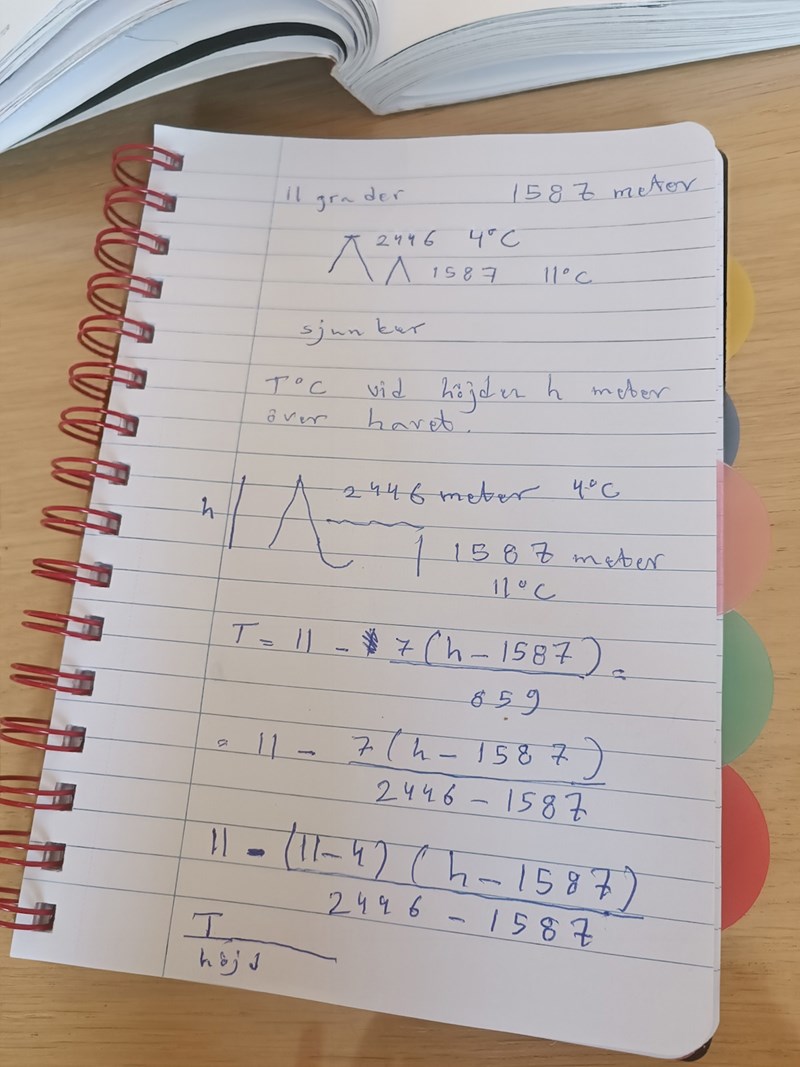 11 grader 1587 meter
2446 4°C
1587 11°C
sjunker
T°C vid höjden h meter
över havet.
2446 meter 4°C
h
1587 meter
11°C
T = 11 - 7(h-1587) =
859
= 11 - 7(h-1587)
2446-1587
11 - (11-4)(h-1587)
2446-1587
T
höjd